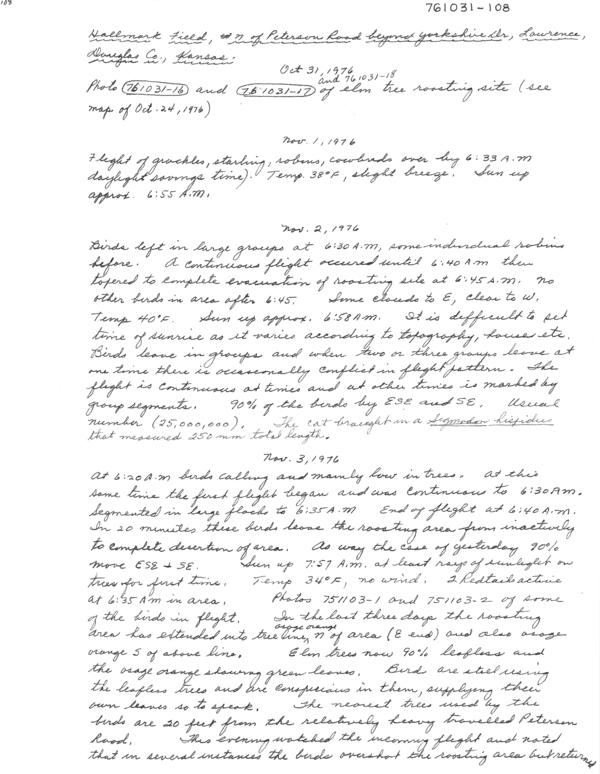 108
761031-108
Hallmark Field, N of Peterson Road beyond Yorkshire Dr, Lawrence,
Douglas Co., Kansas.
Oct 31, 1976
and 761031-18
Photo 761031-16 and 761031-17 of elm tree roosting site (see
map of Oct. 24, 1976)
Nov. 1, 1976
Flight of grackles, starling, robins, cowbirds over by 6:33 A.M
daylight savings time). Temp. 38°F, slight breeze. Sun up
approx. 6:55 A.M.
Nov. 2, 1976
Birds left in large groups at 6:30 A.M, some individual robins
before. A continuous flight occured until 6:40 A.M then
tapered to complete evacuation of roosting site at 6:45 A.M. no
other birds in area after 6:45. Some clouds to E, clear to W.
Temp 40°F. Sun up approx. 6:58 A.M. It is difficult to set
time of sunrise as it varies according to topography, house etc.
Birds leave in groups and when two or three groups leave at
one time there is occasionally conflict in flight pattern. The
flight is continuous at times and at other times is marked by
group segments. 90% of the birds by ESE and SE. Usual
number (25,000,000). The cat brought in a Sigmodon hispidus
that measured 250 mm total length.
Nov. 3, 1976
At 6:20 A.M birds calling and mainly low in trees. At this
same time the first flight began and was continuous to 6:30 A.M.
Segmented in large flocks to 6:35 A.M End of flight at 6:40 A.M.
In 20 minutes these birds leave the roosting area from inactively
to complete desertion of area. As way the case of yesterday 90%
move ESE & SE. Sun up 7:57 A.M. at least rays of sunlight on
trees for first time. Temp 34°F, no wind. 2 Redtails active
at 6:35 AM in area. Photos 751103-1 and 751103-2 of some
of the birds in flight. In the last three days the roosting
osage orange
area has extended into tree line, N of area (E end) and also osage
orange S of above line. Elm trees now 90% leafless and
the osage orange showing green leaves. Bird are still using
the leafless trees and are conspicious in them, supplying their
own leaves so to speak. The nearest trees used by the
birds are 20 feet from the relatively heavy travelled Peterson
Road. This evening watched the incoming flight and noted
that in several instances the birds overshot the roosting area but returned